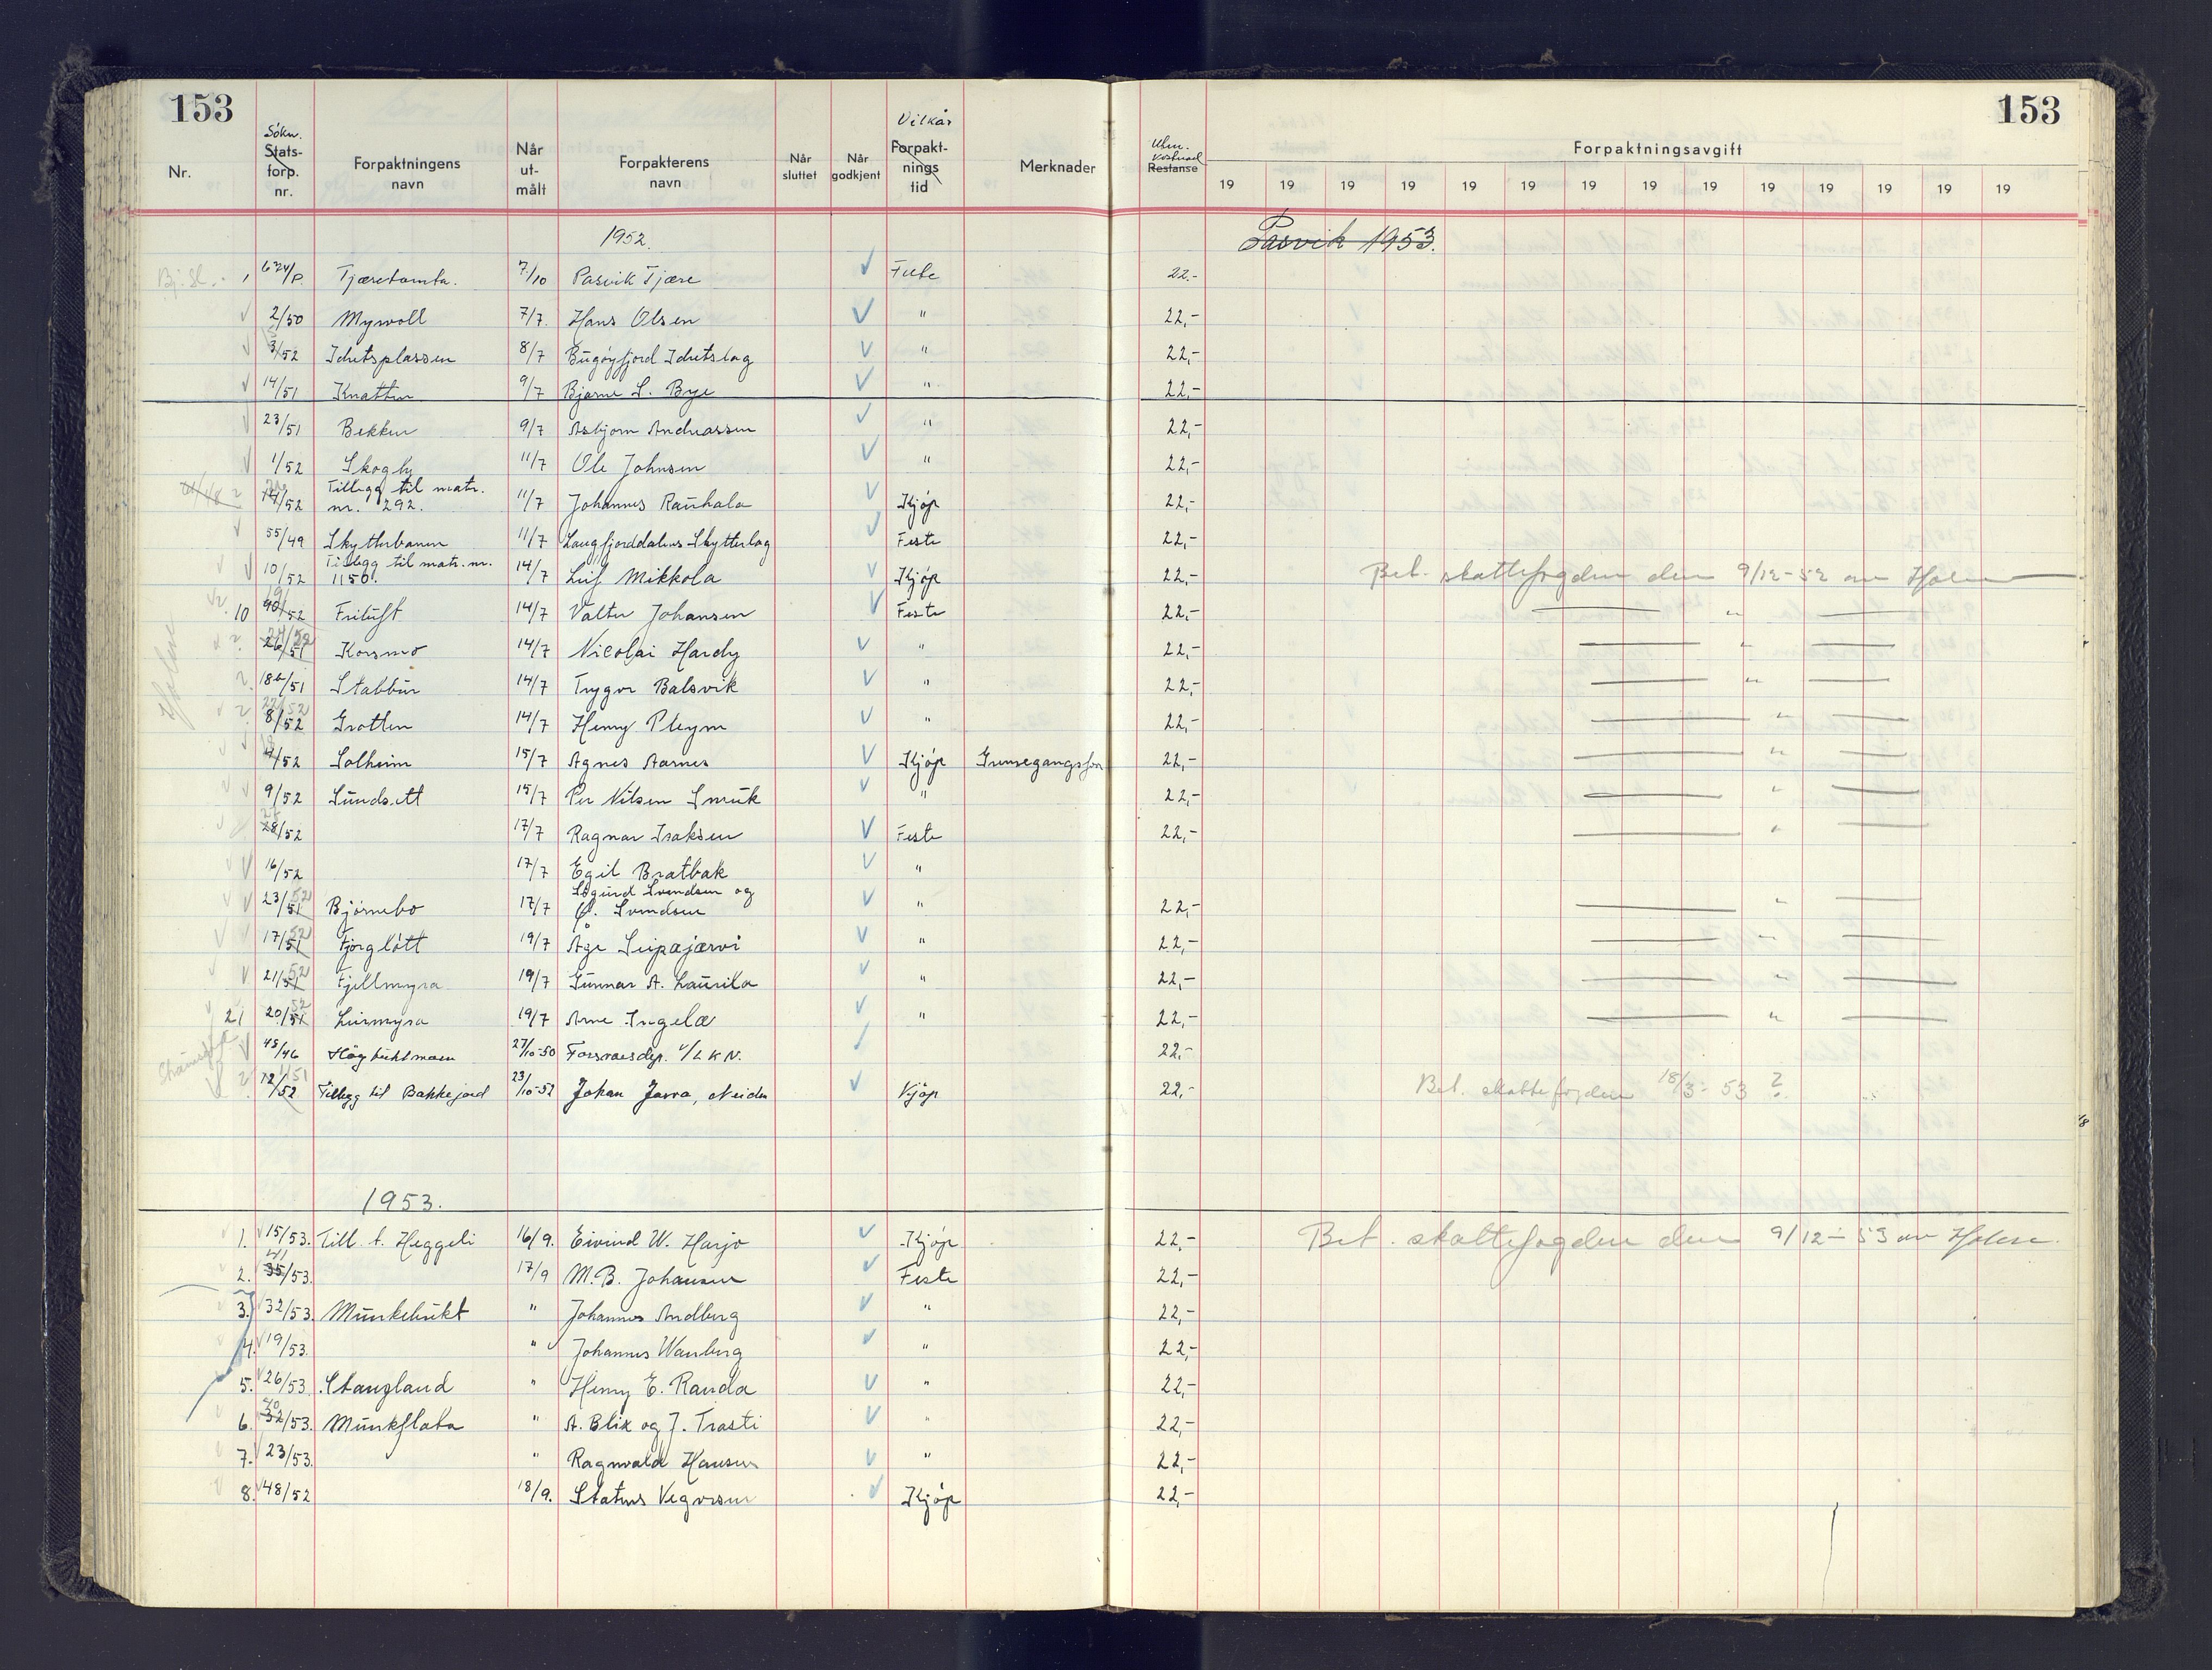 153
153
Nr.
Søkn.
Stats-
forp.
nr.
Forpaktningens
navn
Når
ut-
målt
Forpakterens
navn
Når
sluttet
Når
godkjent
Vilkår
Forpakt-
nings
tid
Merknader
kostnad
Restanse
Forpaktningsavgift
19 19 19 19 19 19 19 19 19 19 19 19 19 19
1952.
Pasvik 1953.
Tjæretomta. 7/10 Pasvik Tjære Feste 22.-
2/50 Myrvoll 7/7. Hans Olsen " 22,-
3/52 Idretsplassen 8/7 Bugøyfjord Idretslag " 22,-
14/51 Knatten 9/7 Bjarne S. Bye " 22,-
23/51 Bekken 9/7 Asbjørn Andreassen " 22,-
1/52 Skogly 11/7 Ole Johnsen " 22,-
14/52 Tillegg til matr.
nr. 292. 11/7 Johannes Rauhala Kjøp 22,-
55/49 Skytterbanen 11/7 Langfjorddalens Skytterlag Feste 22,-
10/52 Tillegg til matr. nr.
1150. 14/7 Leif Mikkola Kjøp 22,- Bet. skattefogden den 9/12-52 av Holm
10 90/52 Friluft 14/7 Valter Johansen Feste 22,- "
26/51 Korsmo 14/7 Nicolai Hardy " 22,- "
18b/51 Stabbur 14/7 Trygve Balsvik " 22,- "
8/52 Grotten 14/7 Henry Pleym " 22,- "
4/52 Solheim 15/7 Agnes Aarnes Kjøp 22,- "
9/52 Sundsett 15/7 Per Nilsen Smuk " 22,- "
28/52 17/7 Ragnar Isaksen Feste 22,- "
16/52 17/7 Egil Bratbak "
23/51 Bjørnebo 17/7 Sigurd Svendsen og
Svendsen " 22,- "
17/51 Fjørgløtt 19/7 Åge Seipajærvi " 22,- "
21/51 Fjellmyra 19/7 Gunnar A. Laurila " 22,- "
21 20/51 Leirmyra 19/7 Arne Ingelæ " 22,- "
45/46 Høybuktmoen 27/10-50 Forsvarsdep. v/L K N. 22.-
12/52 Tillegg til Bakkejord 23/10-52 Johan Jarva, Neiden Kjøp 22,- Bet. skattefogden 18/3-53 ?
1953.
1. 15/53. Till. t. Heggeli 16/9. Eivind W. Harjo Kjøp 22,- Bet. skattefogden den 9/12-53 av Holm
2. 35/53. 17/9 M.B. Johansen Feste 22,-
3. 32/53. Munkebukt " Johannes Andberg " 22,-
4. 19/53. " Johannes Wanberg " 22,-
5. 26/53. Stangland " Henry E. Randa " 22,-
6. 32/53. Munkflata " A. Blix og J. Trasti " 22,-
7. 23/53. " Ragnvald Hansen " 22,-
8. 48/52 18/9. Statens Vegvesen Kjøp 22,-